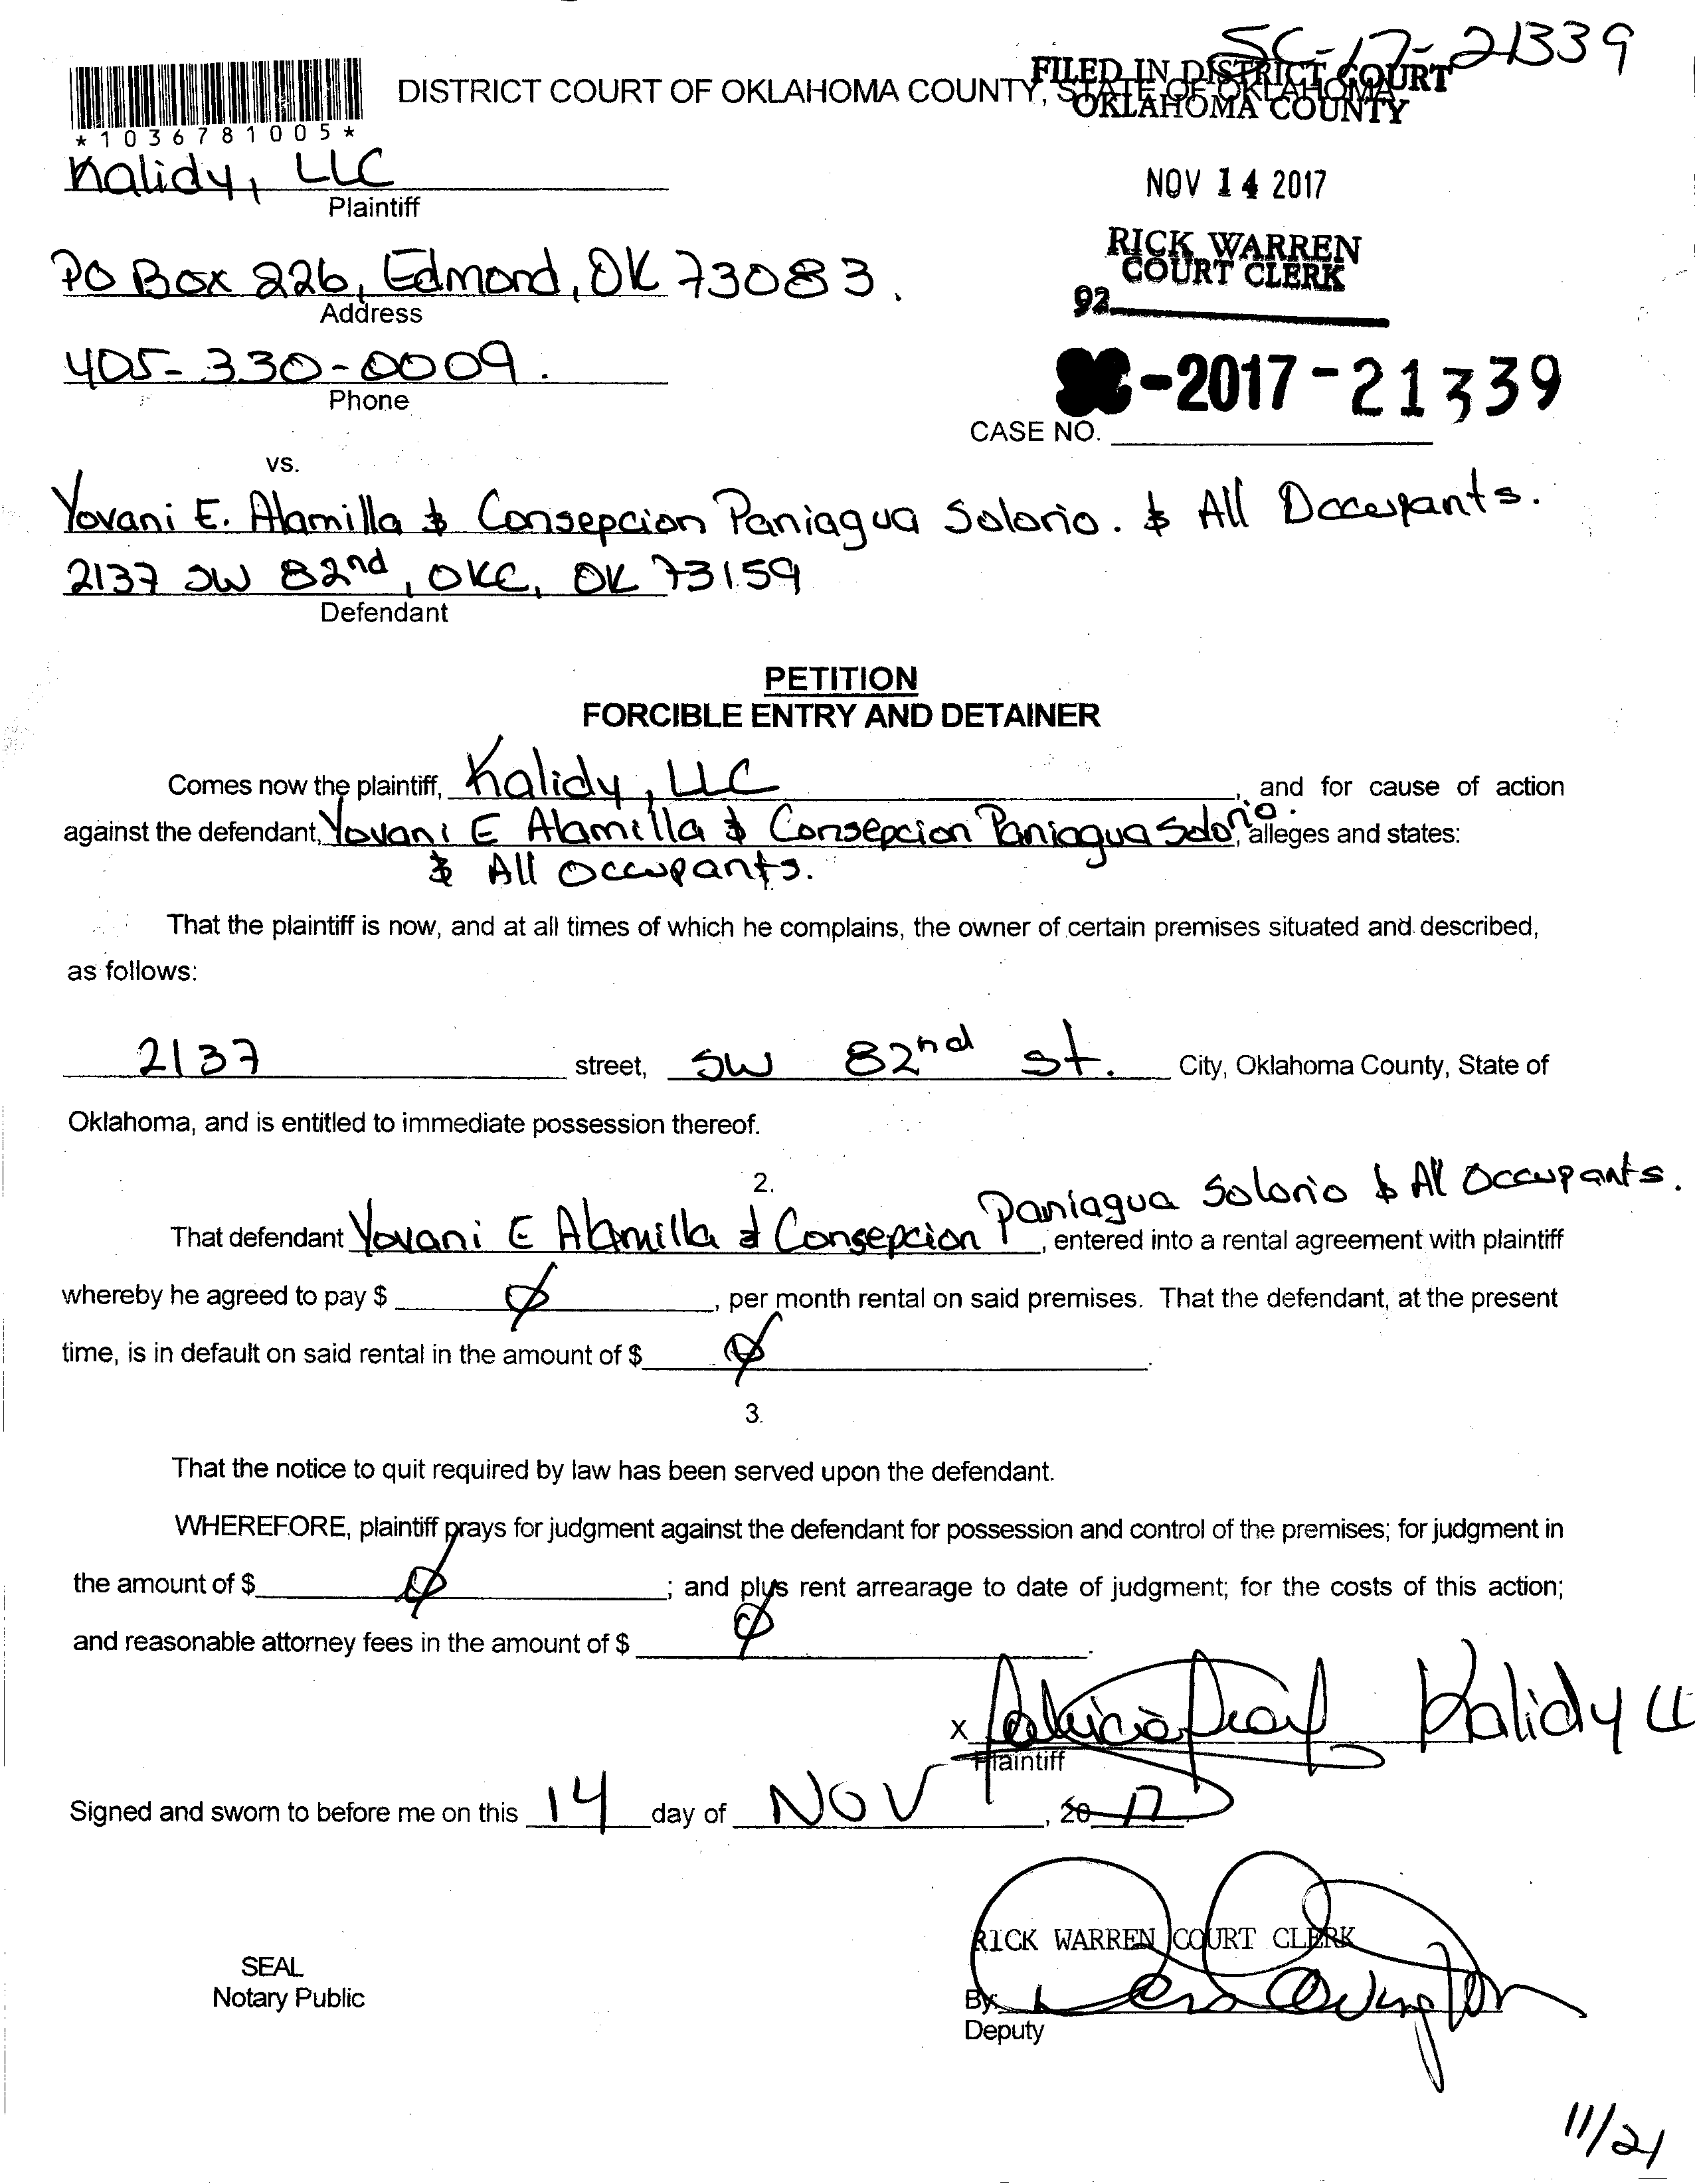 SC-17-21339
DISTRICT COURT OF OKLAHOMA COUNTY, STATE OF OKLAHOMA
FILED IN DISTRICT COURT
OKLAHOMA COUNTY
*1036781005*
Kalidy, LLC
Plaintiff
NOV 14 2017
RICK WARREN
COURT CLERK
92
PO Box 226, Edmond, OK 73083.
Address
405-330-0009.
Phone
SC-2017-21339
CASE NO.
vs.
Yovani E. Alamilla & Consepcion Paniagua Solorio. & All Occupants.
2137 SW 82nd, OKC, OK 73159
Defendant
PETITION
FORCIBLE ENTRY AND DETAINER
Comes now the plaintiff, Kalidy, LLC, and for cause of action
against the defendant, Yovani E Alamilla & Consepcion Paniagua Solorio. alleges and states:
& All Occupants.
That the plaintiff is now, and at all times of which he complains, the owner of certain premises situated and described,
as follows:
2137 street, SW 82nd St. City, Oklahoma County, State of
Oklahoma, and is entitled to immediate possession thereof.
2.
That defendant Yovani E Alamilla & Consepcion Paniagua Solorio & All Occupants., entered into a rental agreement with plaintiff
whereby he agreed to pay $ Ø, per month rental on said premises. That the defendant, at the present
time, is in default on said rental in the amount of $ Ø.
3.
That the notice to quit required by law has been served upon the defendant.
WHEREFORE, plaintiff prays for judgment against the defendant for possession and control of the premises; for judgment in
the amount of $ Ø; and plus rent arrearage to date of judgment; for the costs of this action;
and reasonable attorney fees in the amount of $ Ø.
X Kalidy LL
Plaintiff
Signed and sworn to before me on this 14 day of NOV, 20 17
RICK WARREN COURT CLERK
SEAL
Notary Public
By: Covington
Deputy
11/21